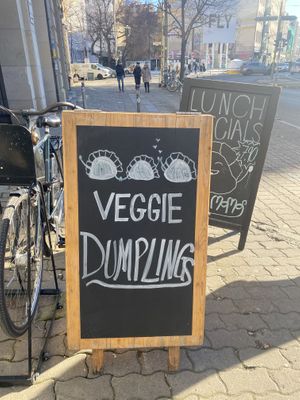 VEGGIE
DUMPLINGS
LUNCH
SPECIALS
MOMOS
FLY